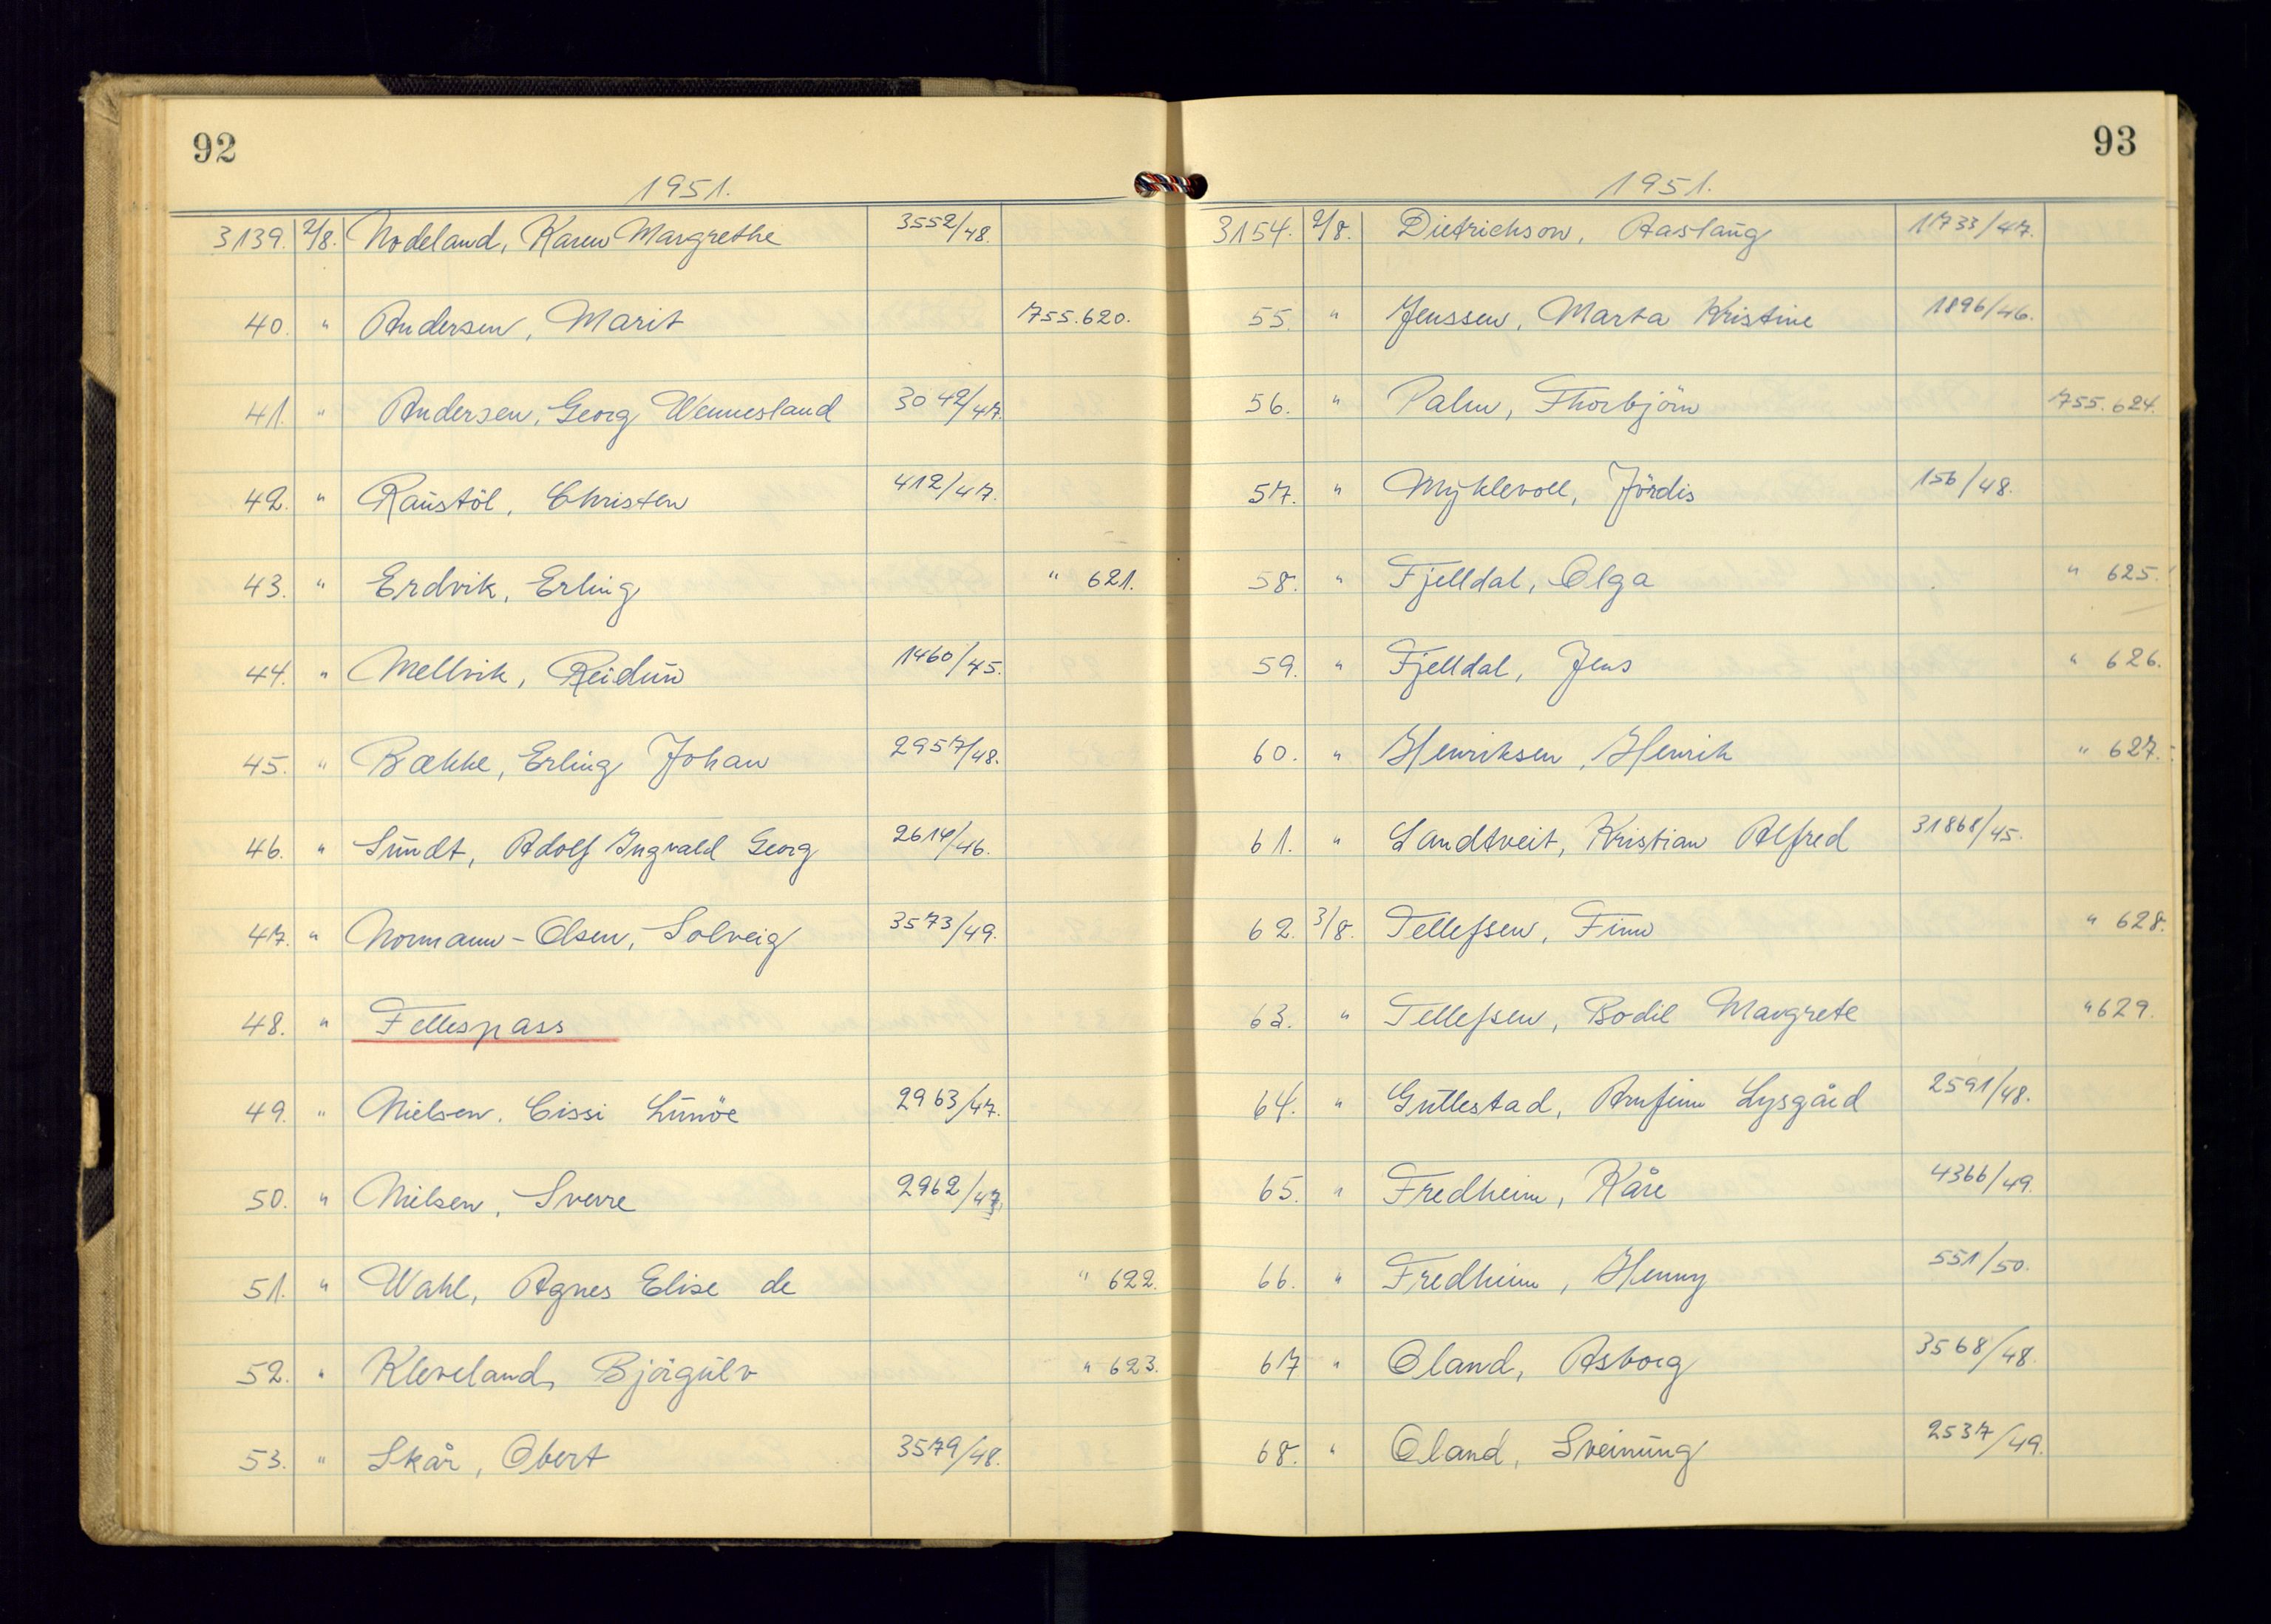 92
1951.
3139. 2/8. Nodeland, Karen Margrethe 3552/48.
40. " Andersen, Marit 755.620.
41. " Andersen, Georg Wennesland 3042/47.
42. " Raustöl, Christen 412/47.
43. " Erdvik, Erling " 621.
44. " Mellvik, Reidun 1460/45.
45. " Bække, Erling Johan 2957/48.
46. " Sundt, Adolf Ingvald Georg 2614/46.
47. " Normann-Olsen, Solveig 3573/49.
48. " Fellespass
49. " Nielsen, Cissi Lunöe 2963/47.
50. " Nielsen, Sverre 2962/47.
51. " Wahl, Agnes Elise de " 622.
52. " Kleveland, Bjørgulv " 623.
53. " Skår, Obert 3579/48.
93
1951.
3154. 2/8. Dietrichson, Aaslaug 11733/47.
55. " Jenssen, Marta Kristine 1896/46.
56. " Palm, Thorbjörn 755.624.
57. " Myklevoll, Jördis 156/48.
58. " Fjelldal, Olga " 625.
59. " Fjelldal, Jens " 626.
60. " Henriksen, Henrik " 627.
61. " Landtveit, Kristian Alfred 31868/45.
62. 3/8. Tellefsen, Finn " 628.
63. " Tellefsen, Bodil Margrete " 629.
64. " Gullestad, Arnfinn Lysgård 2591/48.
65. " Fredheim, Kåre 4366/49.
66. " Fredheim, Henny 551/50.
67 " Oland, Asborg 3568/48.
68. " Oland, Sveinung 2537/49.